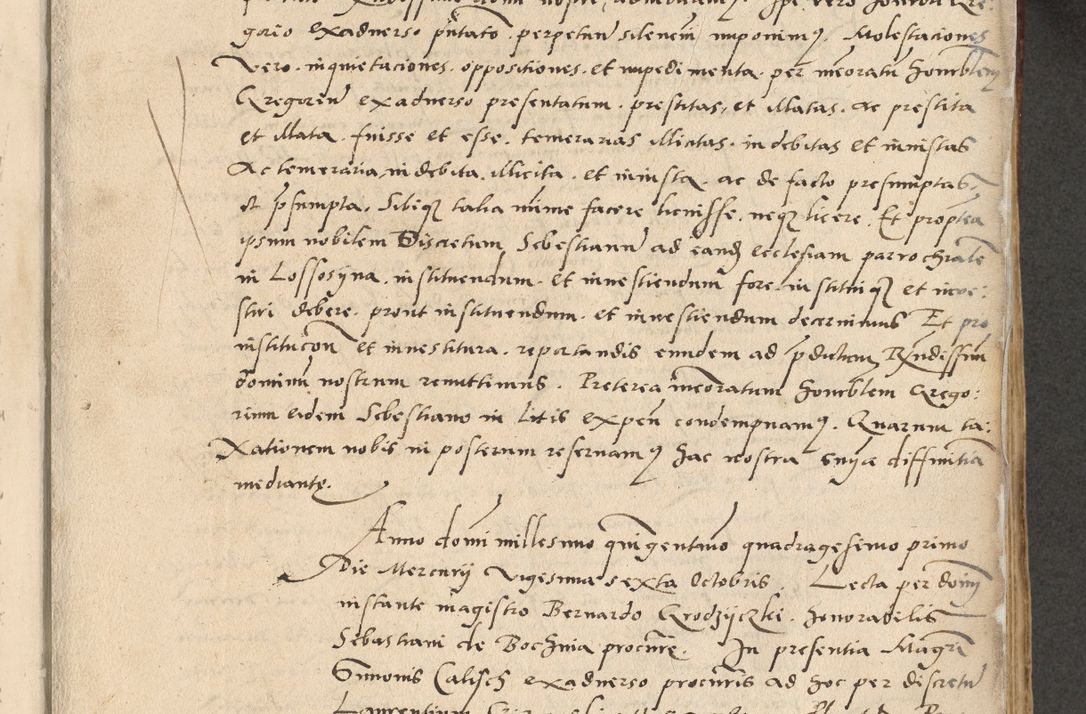 gorio exadverso pñtato perpetuũ silenciũ imponimꝰ. Molestaciones
vero. inquietaciones. oppositiones. et impedimenta. per meoratũ honorblem
Gregoriũ exadverso presentatum. prestitas, et illatas. ac prestita
et illata. fuisse et esse. temerarias illicitas. indebitas et iniustas
Ac temeraria, indebita, illicita. et iniusta. ac de facto presumptas,
et p̃sumpta. Sibiqꝫ talia mĩme facere licuisse. neqꝫ licere. Et propterea
ipsum nobilem Discretum Sebestianũ ad eand ecclesiam parrochialẽ
in Lossosyna. instituendum. et investiendum fore. instituiqꝫ et inve:
stiri debere. prout instituendum. et investiendum decernimus Et pro
institucõn et investitura. reportandis eundem ad p̃dictum Rũdissim
dominũ nostrum remittimus. Preterea meoratum honorblem Grego:
rium eidem Sebestiano in litis expeñ condempnamꝰ. Quarum ta:
xationem nobis in posterum reservamꝰ hac nostra sniã diffinitia
mediante.
Anno domĩ millesimo quĩgentimo quadragesimo primo
Die Mercurij vigesima sexta Octobris. Lecta per domĩ
instante magistro Bernardo Grodzyczki. honorabilis
Sebastiani de Bochnia procurẽ. In presentia Magrĩ
Simonis Calisch exadverso procuris ad hoc per discretũ